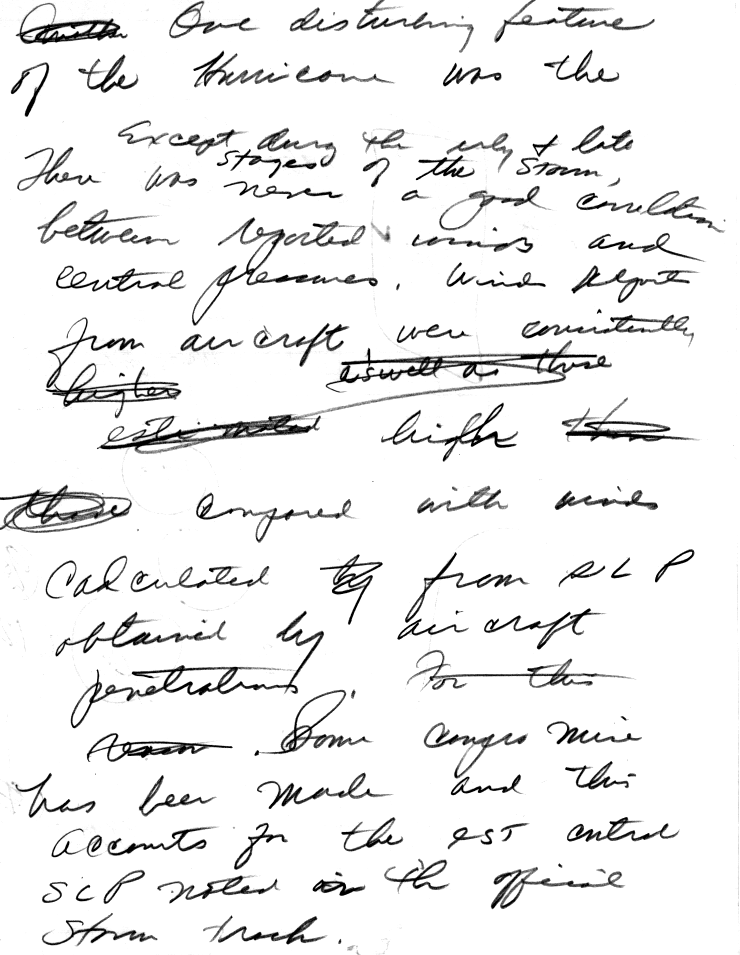 One disturbing feature
of the Hurricane was the
Except during the erly & late
stages of the storm,
There was never a good correlation
between reported winds and
central pressures. Winds reports
from aircraft were consistently
higher as well as those
estimated higher than
those compared with winds
Calculated by from SLP
obtained by aircraft
penetrations. For this
reason. Some compromise
has been made and this
accounts for the est central
SLP noted in the official
storm track.